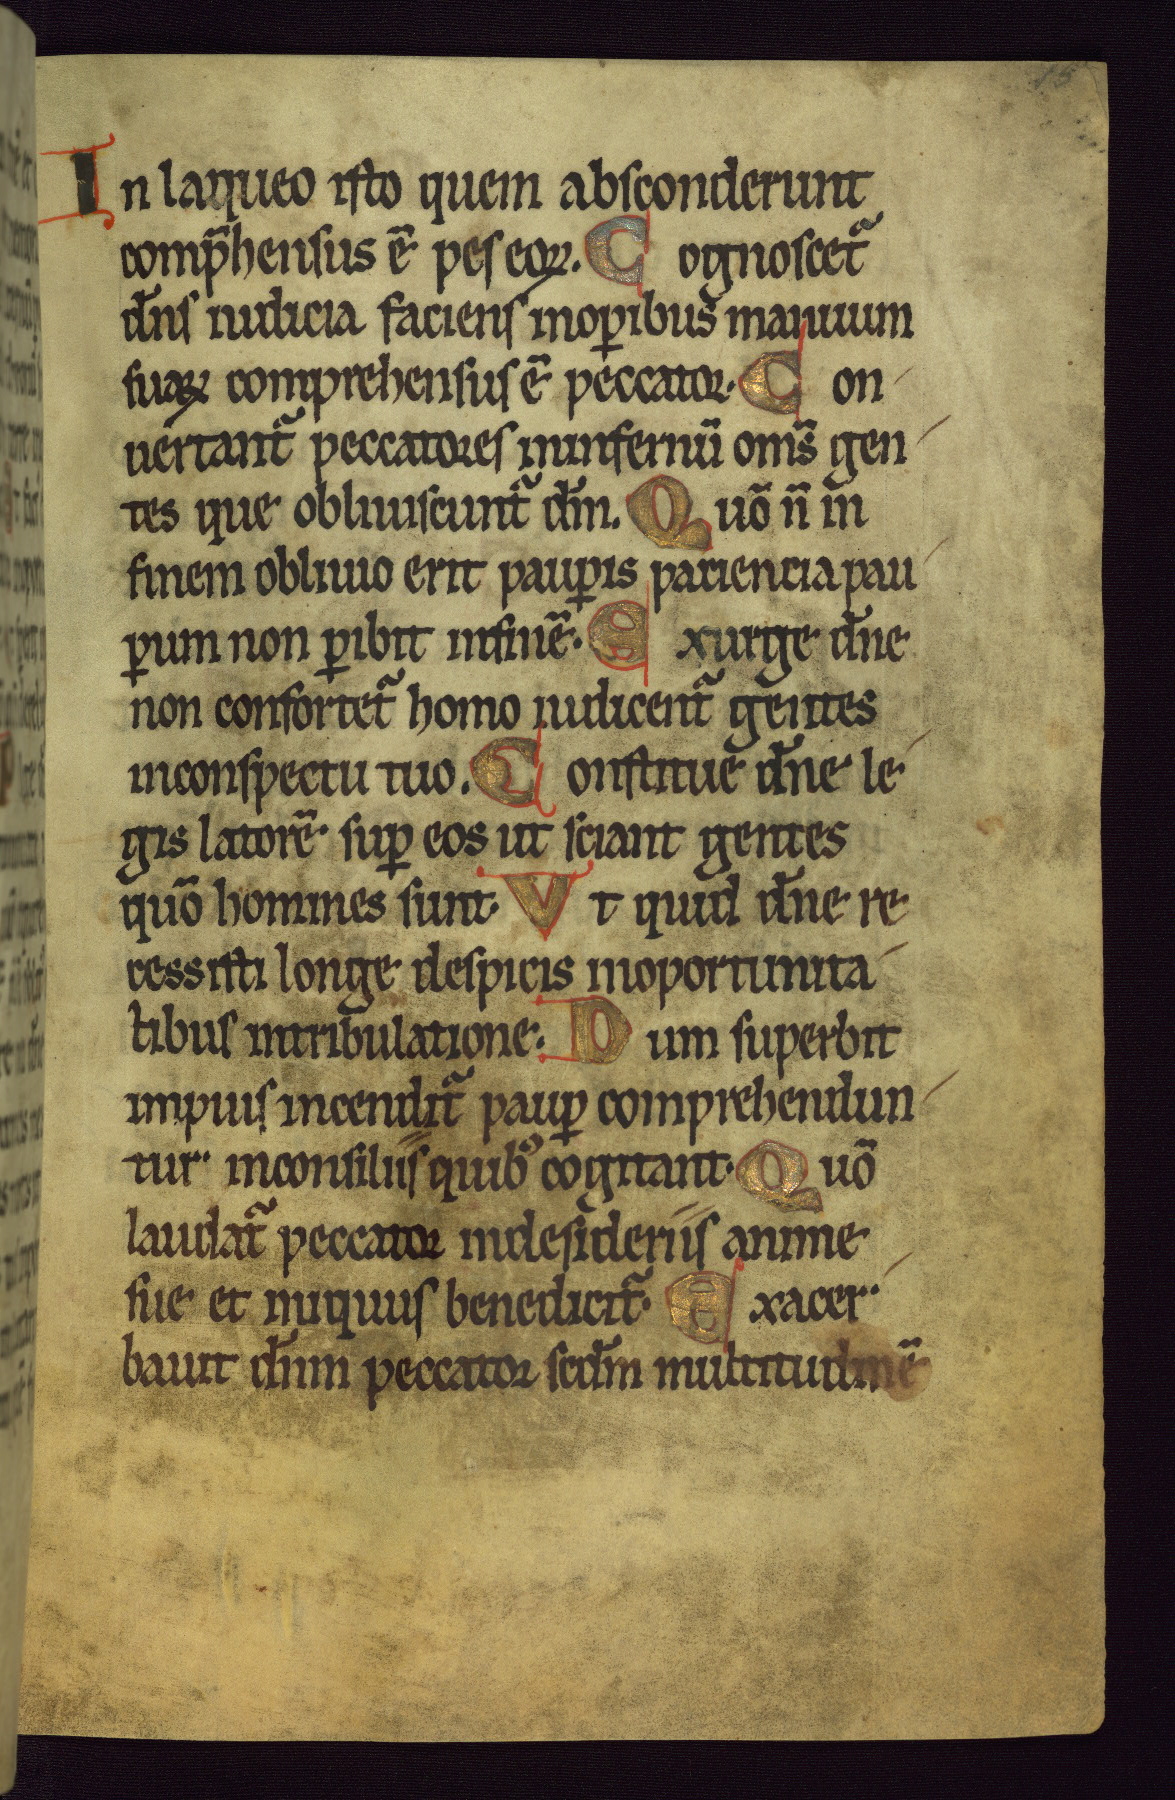 15
In laqueo isto quem absconderunt
comp̄hensus ē pes eoꝝ. Cognoscet᷑
dn̄s iudicia faciens inoꝑibus manuum
suaꝝ comprehensus ē peccator. Con
uertant᷑ peccatores ininfernū om̄s gen
tes que obliuiscunt᷑ dm̄. Quō n̄ in
finem obliuio erit pauꝑis paciencia pau
ꝑum non ꝑibit infinē. Exurge dn̄e
non confortet᷑ homo iudicent᷑ gentes
inconspectu tuo. Constitue dn̄e le
gis latorē suꝑ eos ut sciant gentes
quō homines sunt. Vt quid dn̄e re
cessisti longe despicis inoportunita
tibus intribulatione. Dum superbit
impius incendit᷑ pauꝑ comprehendun
tur inconsiliis quibꝰ cogitant. Quō
laudat᷑ peccator indesideriis anime
sue et iniquus benedicit᷑. Exacer
bauit dn̄m peccator scdm̄ multitudinē